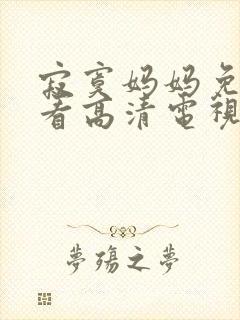 寂寞妈妈免
看高清電視
夢殤之夢